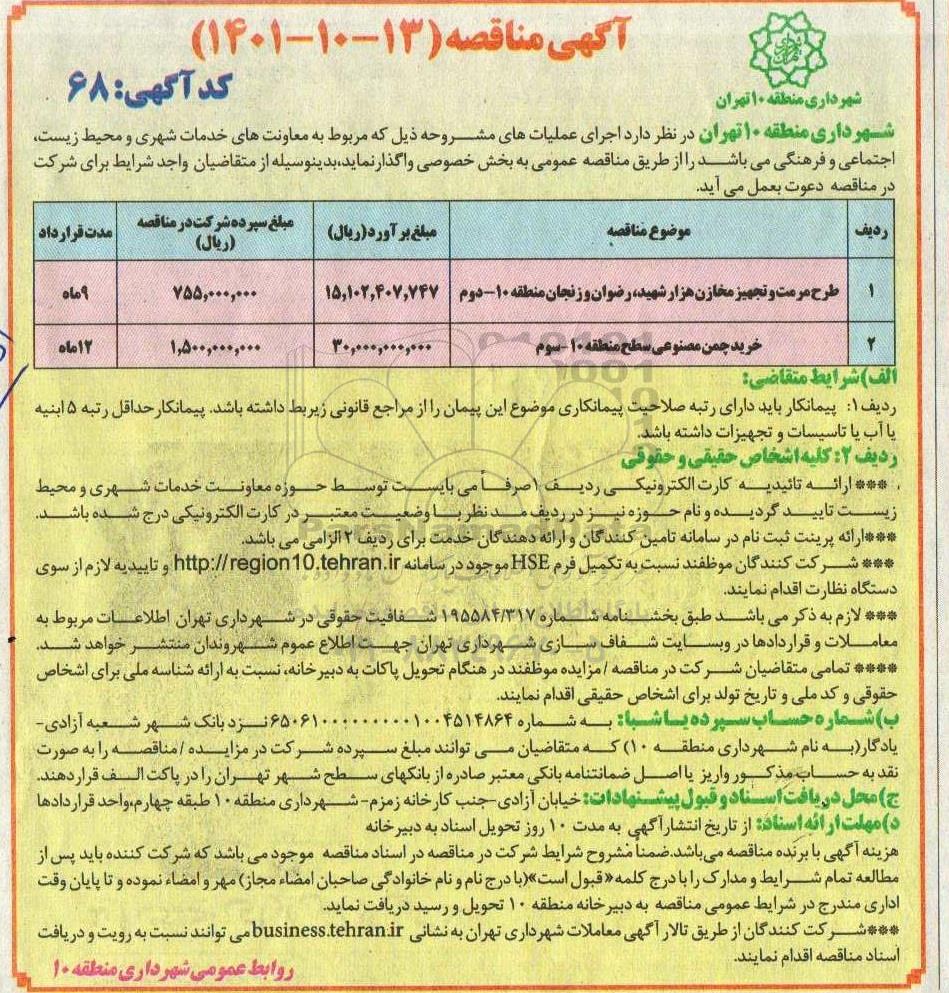 آگهی مناقصه (۱۳-۱۰-۱۴۰۱)
کد آگهی: ۶۸
شهرداری منطقه ۱۰ تهران
شهرداری منطقه ۱۰ تهران در نظر دارد اجرای عملیات های مشروحه ذیل که مربوط به معاونت های خدمات شهری و محیط زیست،
اجتماعی و فرهنگی می باشد را از طریق مناقصه عمومی به بخش خصوصی واگذار نماید، بدینوسیله از متقاضیان واجد شرایط برای شرکت
در مناقصه دعوت بعمل می آید.
ردیف موضوع مناقصه مبلغ برآورد (ریال) مبلغ سپرده شرکت در مناقصه (ریال) مدت قرارداد
۱ طرح مرمت و تجهیز مخازن هزار شهید، رضوان و زنجان منطقه ۱۰-دوم ۱۵,۱۰۲,۴۰۷,۷۴۷ ۷۵۵,۰۰۰,۰۰۰ ۹ ماه
۲ خرید چمن مصنوعی سطح منطقه ۱۰-سوم ۳۰,۰۰۰,۰۰۰,۰۰۰ ۱,۵۰۰,۰۰۰,۰۰۰ ۱۲ ماه
الف) شرایط متقاضی:
ردیف ۱: پیمانکار باید دارای رتبه صلاحیت پیمانکاری موضوع این پیمان را از مراجع قانونی زیربط داشته باشد. پیمانکار حداقل رتبه ۵ ابنیه
یا آب یا تاسیسات و تجهیزات داشته باشد.
ردیف ۲: کلیه اشخاص حقیقی و حقوقی
*** ارائه تائیدیه کارت الکترونیکی ردیف ۱ صرفاً می بایست توسط حوزه معاونت خدمات شهری و محیط
زیست تایید گردیده و نام حوزه نیز در ردیف مد نظر با وضعیت معتبر در کارت الکترونیکی درج شده باشد.
***ارائه پرینت ثبت نام در سامانه تامین کنندگان و ارائه دهندگان خدمت برای ردیف ۲ الزامی می باشد.
*** شرکت کنندگان موظفند نسبت به تکمیل فرم HSE موجود در سامانه http://region10.tehran.ir و تاییدیه لازم از سوی
دستگاه نظارت اقدام نمایند.
*** لازم به ذکر می باشد طبق بخشنامه شماره ۱۹۵۵۸۴/۳۱۷ شفافیت حقوقی در شهرداری تهران اطلاعات مربوط به
معاملات و قراردادها در وبسایت شفاف سازی شهرداری تهران جهت اطلاع عموم شهروندان منتشر خواهد شد.
**** تمامی متقاضیان شرکت در مناقصه / مزایده موظفند در هنگام تحویل پاکات به دبیرخانه، نسبت به ارائه شناسه ملی برای اشخاص
حقوقی و کد ملی و تاریخ تولد برای اشخاص حقیقی اقدام نمایند.
ب) شماره حساب سپرده یا شبا: به شماره ۶۵۰۶۱۰۰۰۰۰۰۰۰۰۰۱۰۰۴۵۱۴۸۶۴ نزد بانک شهر شعبه آزادی-
یادگار(به نام شهرداری منطقه ۱۰) که متقاضیان می توانند مبلغ سپرده شرکت در مزایده / مناقصه را به صورت
نقد به حساب مذکور واریز یا اصل ضمانتنامه بانکی معتبر صادره از بانکهای سطح شهر تهران را در پاکت الف قرار دهند.
ج) محل دریافت اسناد و قبول پیشنهادات: خیابان آزادی-جنب کارخانه زمزم- شهرداری منطقه ۱۰ طبقه چهارم، واحد قراردادها
د) مهلت ارائه اسناد: از تاریخ انتشار آگهی به مدت ۱۰ روز تحویل اسناد به دبیرخانه
هزینه آگهی با برنده مناقصه می‌باشد. ضمناً مشروح شرایط شرکت در مناقصه در اسناد مناقصه موجود می باشد که شرکت کننده باید پس از
مطالعه تمام شرایط و مدارک را با درج کلمه «قبول است»(با درج نام و نام خانوادگی صاحبان امضاء مجاز) مهر و امضاء نموده و تا پایان وقت
اداری مندرج در شرایط عمومی مناقصه به دبیرخانه منطقه ۱۰ تحویل و رسید دریافت نماید.
***شرکت کنندگان از طریق تالار آگهی معاملات شهرداری تهران به نشانی business.tehran.ir می توانند نسبت به رویت و دریافت
اسناد مناقصه اقدام نمایند.
روابط عمومی شهرداری منطقه ۱۰